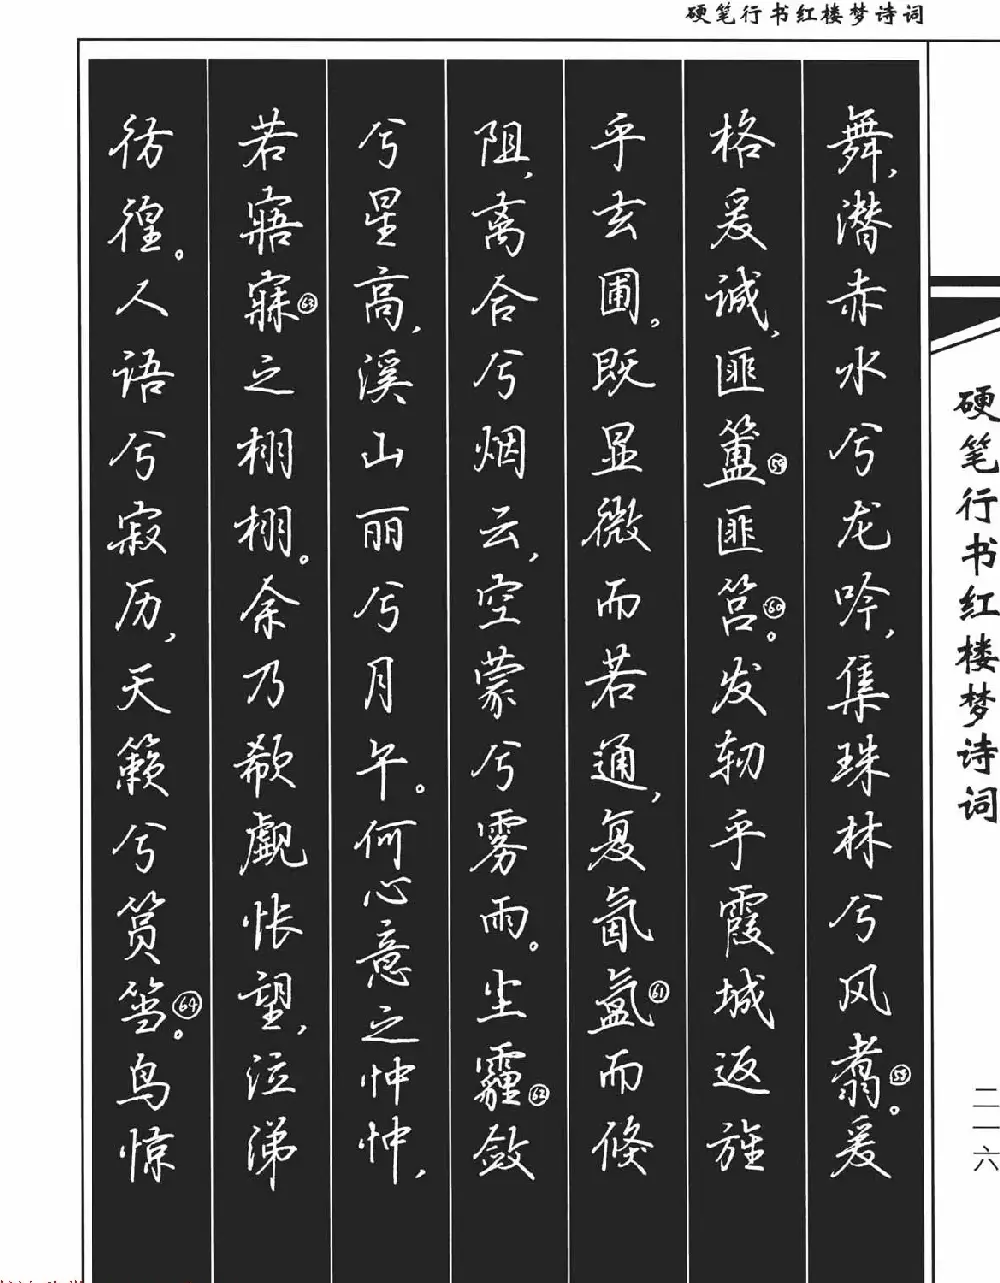 硬笔行书红楼梦诗词
舞,潜赤水兮龙吟,集珠林兮凤翥㊽。爰
格爰诚,匪簠㊾匪筥㊿。发轫乎霞城,返旌
乎玄圃。既显微而若通,复氤氲而倏
阻,离合兮烟云,空蒙兮雾雨。尘霾敛
兮星高,溪山丽兮月午。何心意之忡忡,
若寤寐之栩栩。余乃欷歔怅望,泣涕
彷徨。人语兮寂历,天籁兮筼筜。鸟惊
硬笔行书红楼梦诗词
二一六